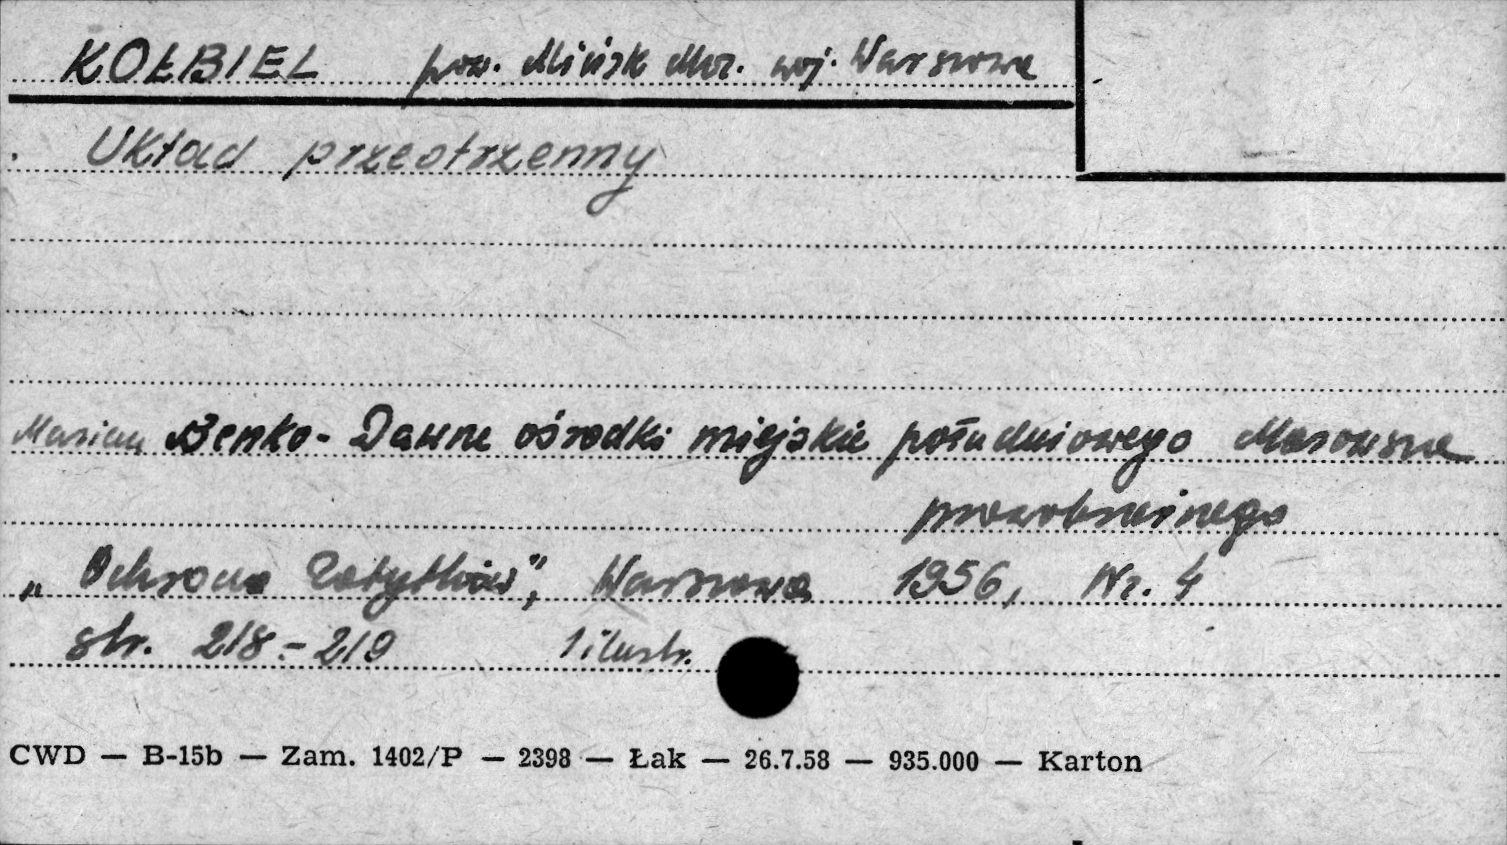 KOŁBIEL pow. Mińsk Maz. woj. Warszawa
Układ przestrzenny
Marian Benko - Dawne ośrodki miejskie południowego Mazowsza
prawobrzeżnego
„Ochrona Zabytków", Warszawa 1956, Nr. 4
str. 218-219 1 ilustr.
CWD — B-15b — Zam. 1402/P — 2398 — Łak — 26.7.58 — 935.000 — Karton